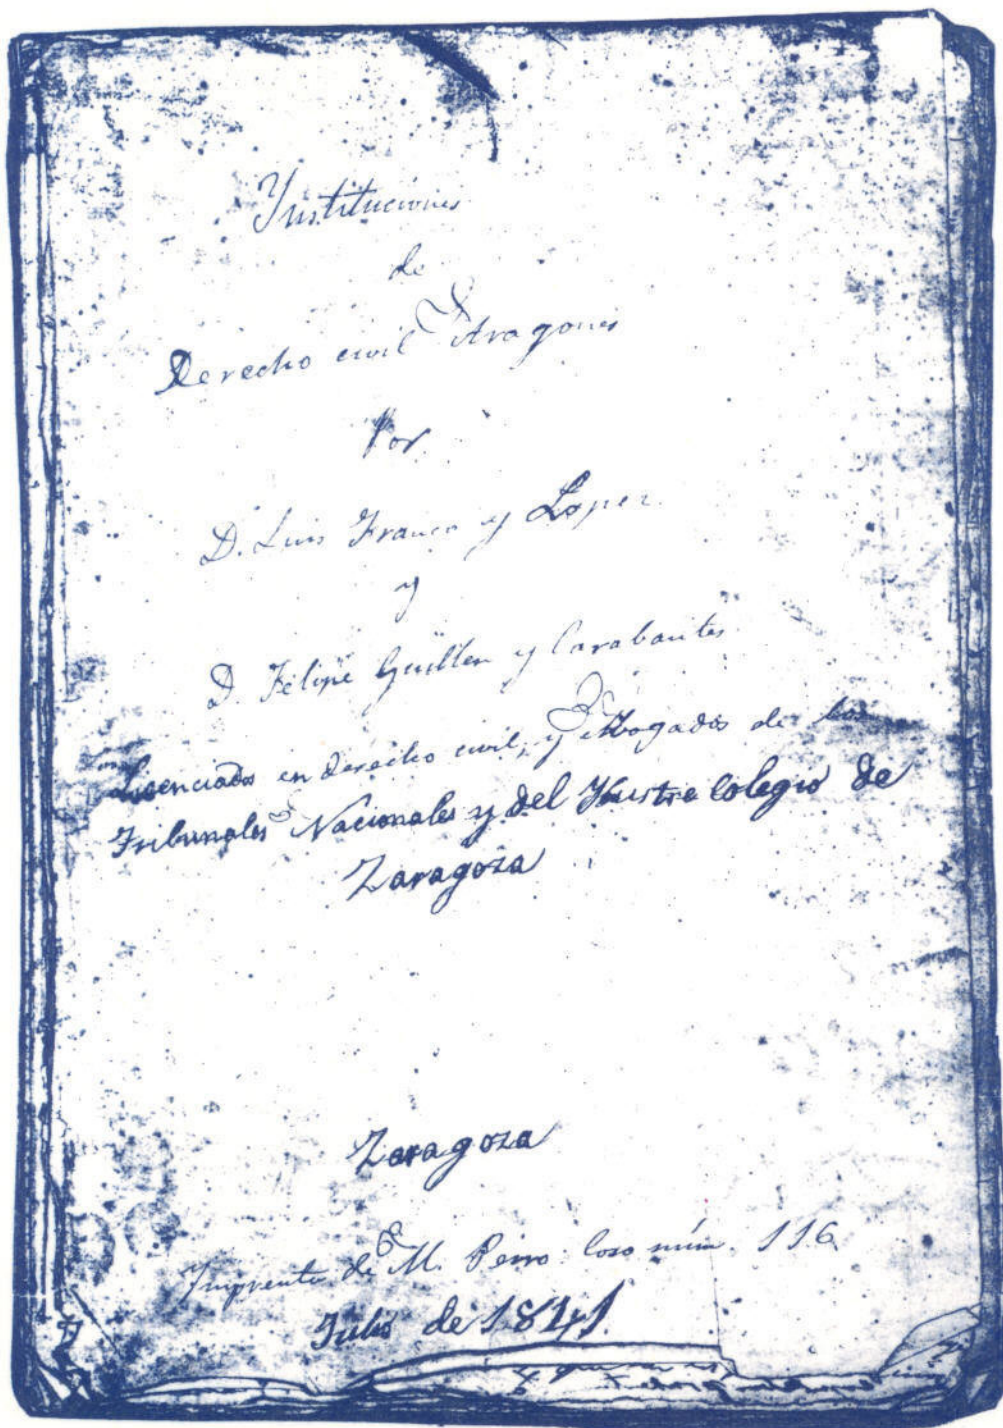 Ynstituciones
de
Derecho civil Aragones
Por
D. Luis Franco y Lopez
y
D. Felipe Guillen y Carabantes
Licenciados en derecho civil, y Abogados de los
Tribunales Nacionales y del Ylustre Colegio de
Zaragoza
Zaragoza
Ymprenta de M. Peiro Coso núm. 116
Julio de 1841.